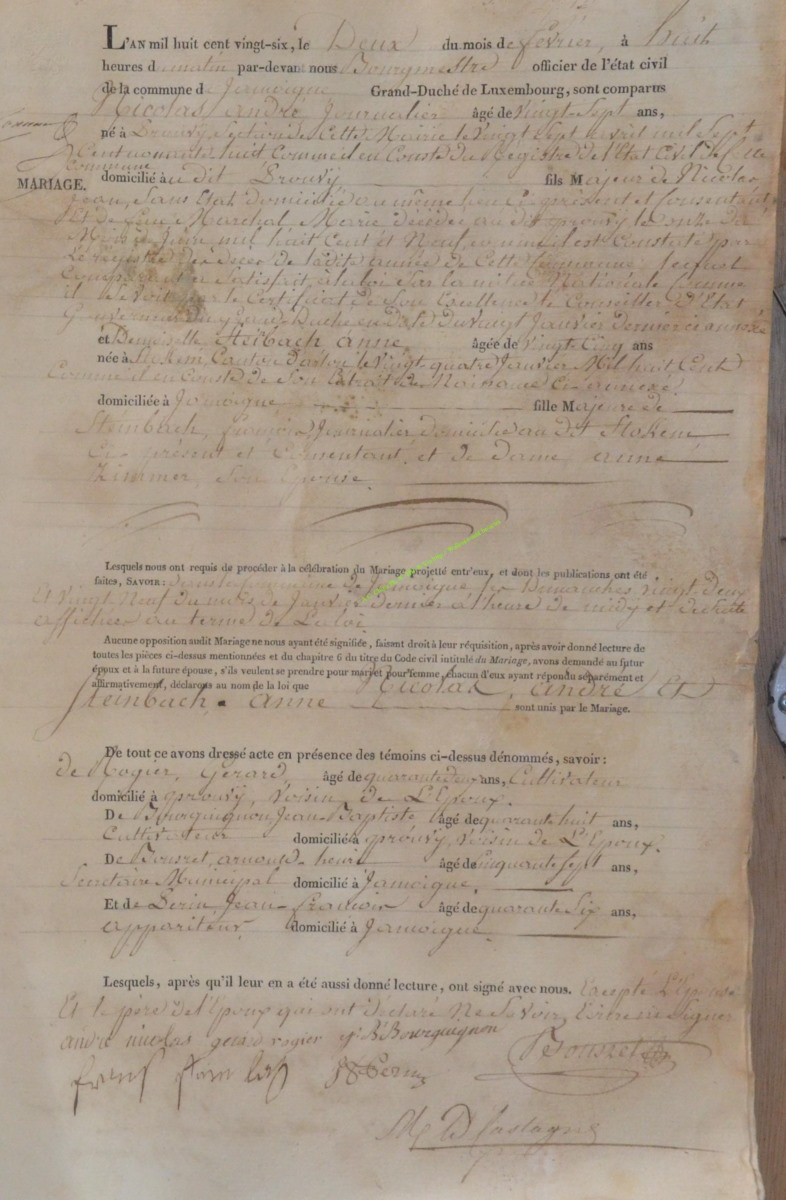 L'AN mil huit cent vingt-six, le Deux du mois de février, à huit
heures d matin par-devant nous Bourgmestre officier de l'état civil
de la commune d Jamoigne Grand-Duché de Luxembourg, sont comparus
Nicolas André Journalier âgé de vingt sept ans,
né à Prouvy Section de Cette Mairie le vingt sept avril mil Sept
Cent nonante huit Comme il en Conste du Registre de l'Etat Civil de Cette
commune
MARIAGE.
domicilié au dit Prouvy fils Majeur de Nicolas
Jean, Sans Etat domicilié au même lieu Ci présent et Consentant
Et de Marchal Marie décédée au dit prouvy le onze du
Mois de Juin mil huit Cent et Neuf comme il est Constaté par
Le registre des deces de ladite année de Cette Commune, lequel
a Satisfait à la loi Sur la milice Nationale Comme
il le Certificat de Son Excellence le Conseiller d'Etat
Gouverneur du Grand-Duché en Date du vingt Janvier dernier ci annexé
et Demoiselle Steibach anne âgée de vingt Cinq ans
née à Stokem, Canton d'arlon le vingt quatre Janvier Mil huit Cent
Comme il en Conste de Son Extrait de Naissance Ci annexé.
domiciliée à Jamoigne fille Majeure de
Steinbach, Journalier domicilié au dit Stokem
Ci présent et Consentant, et de dame anne
Zimmer, Son Epouse.
Lesquels nous ont requis de procéder à la célébration du Mariage projetté entr'eux, et dont les publications ont été
faites, SAVOIR : dans la Commune de Jamoigne les Dimanches vingt-deux
Et vingt Neuf du mois de Janvier dernier à l'heure de midy et
affichées au terme de La loi
Aucune opposition audit Mariage ne nous ayant été signifiée, faisant droit à leur réquisition, après avoir donné lecture de
toutes les pièces ci-dessus mentionnées et du chapitre 6 du titre du Code civil intitulé du Mariage, avons demandé au futur
époux et à la future épouse, s'ils veulent se prendre pour mari et pour femme, chacun d'eux ayant répondu séparément et
affirmativement, déclarons au nom de la loi que Nicolas, andré Et
Steinbach anne sont unis par le Mariage.
De tout ce avons dressé acte en présence des témoins ci-dessus dénommés, savoir :
de Rogier, Gerard âgé de quarante deux ans, Cultivateur
domicilié à prouvy, Voisin de L'Epoux.
De Bourguignon Jean Baptiste âgé de quarante huit ans,
Cultivateur domicilié à prouvy, Voisin de L'Epoux.
De Bousret, arnould henri âgé de Cinquante Sept ans,
Secretaire Municipal domicilié à Jamoigne,
Et de Jean-François âgé de quarante Six ans,
appariteur domicilié à Jamoigne
Lesquels, après qu'il leur en a été aussi donné lecture, ont signé avec nous. Excepté L'Epouse
Et le père de l'Epoux qui ont déclaré Ne Savoir Ecrire ni Signer
andré nicolas gerard rogier Bourguignon
Bousret